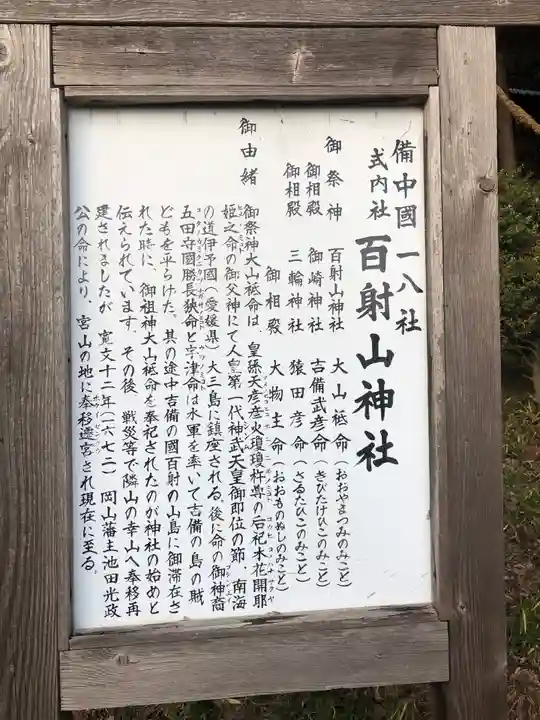 備中國 一八社
式内社 百射山神社
御祭神 百射山神社 大山祗命(おおやまつみのみこと)
御相殿 御崎神社 吉備武彦命(きびたけひこのみこと)
御相殿 三輪神社 猿田彦命(さるたひこのみこと)
御相殿 大物主命(おおものぬしのみこと)
御由緒
御祭神大山祗命は、皇孫天彦彦火瓊瓊杵尊の后祀木花開耶
姫之命の御父神にて人皇第一代神武天皇御即位の節、南海
の道伊予國(愛媛県)大三島に鎮座される。後に命の御神裔
五田守國勝長狭命と宇津命は水軍を率いて吉備の島の賊
どもを平らげた。其の途中吉備の國百射の山島に御滞在さ
れた時に、御祖神大山祗命を奉祀されたのが神社の始めと
伝えられています。その後 戦災等で隣山の幸山へ奉移再
建されましたが 寛文十二年(一六七二) 岡山藩主池田光政
公の命により、宮山の地に奉移遷宮され現在に至る。